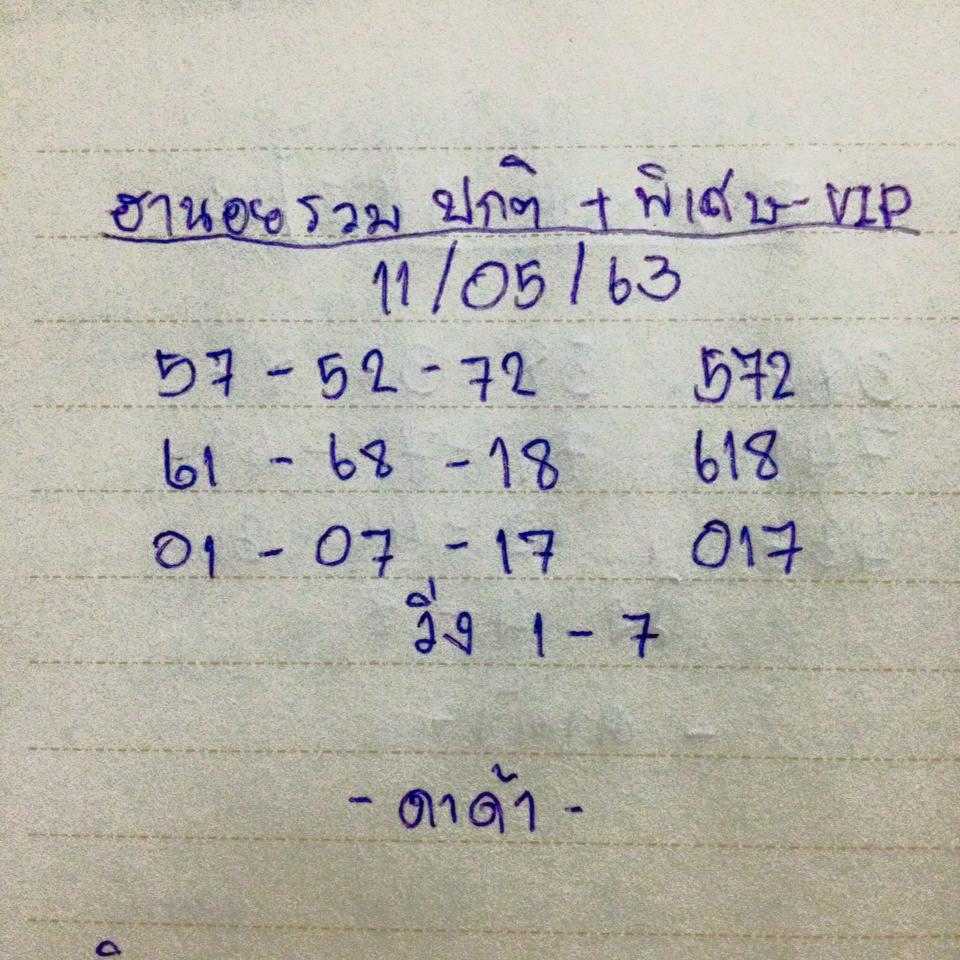 ฮานอยรวม ปกติ + พิเศษ - VIP
11/05/63
57 - 52 - 72 572
61 - 68 - 18 618
01 - 07 - 17 017
วิ่ง 1 - 7
- ดาด้า -